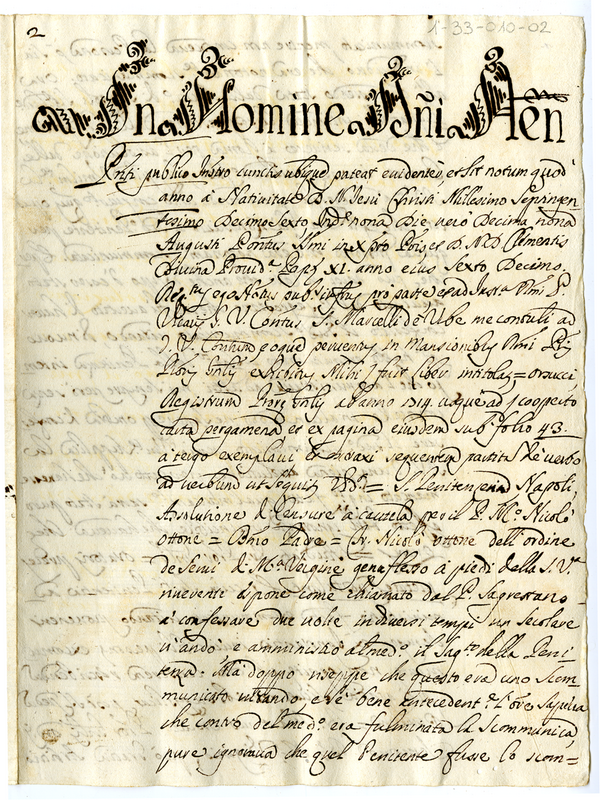 2
1-33-010-02
In Nomine Dñi Amen
publico Instro cunctis ubique pateat evidenter, et sit notum quod
anno a Nativitate D. N. Jesu Christi Millesimo Septingen
tesimo Decimo Sexto Indne nona Die vero Decima nona
Augusti Pontus in xpto D. N. D. Clementis
Divina Provida Papæ XI. anno eius Sexto Decimo
ego Notus pro parte et ad
S. V. Contus S. Marcelli de Urbe me contuli ad
S. V. Contum eoque perventus in Mansionibus
exhibitus Mihi fuit liber
Registrum ab anno 1514 usque ad coopecto
carta pergamena et ex pagina eiusdem sub folio 43.
a tergo exemplavi et extraxi sequentem partitam de verbo
ad verbum ut sequitur = Penitenzeria Napoli
Assolutione di Censure a cautela per il P. Mo. Nicolò
Ottone = Padre = Fr. Nicolò Ottone dell'ordine
de Servi di Ma. Vergine genuflesso a piedi della S. V.
riverente espone come chiamato dal P. Sagrestano
a confessare due volte in diversi tempi un Secolare
v'andò e amministrò al medo. il Sagto. della Peni
tenza. Mà doppo riseppe che questo era uno scom
municato vitando, e se bene sapeva
che contro del medo. era fulminata la Scommunica,
pure ignorava che quel Penitente fusse lo scom=